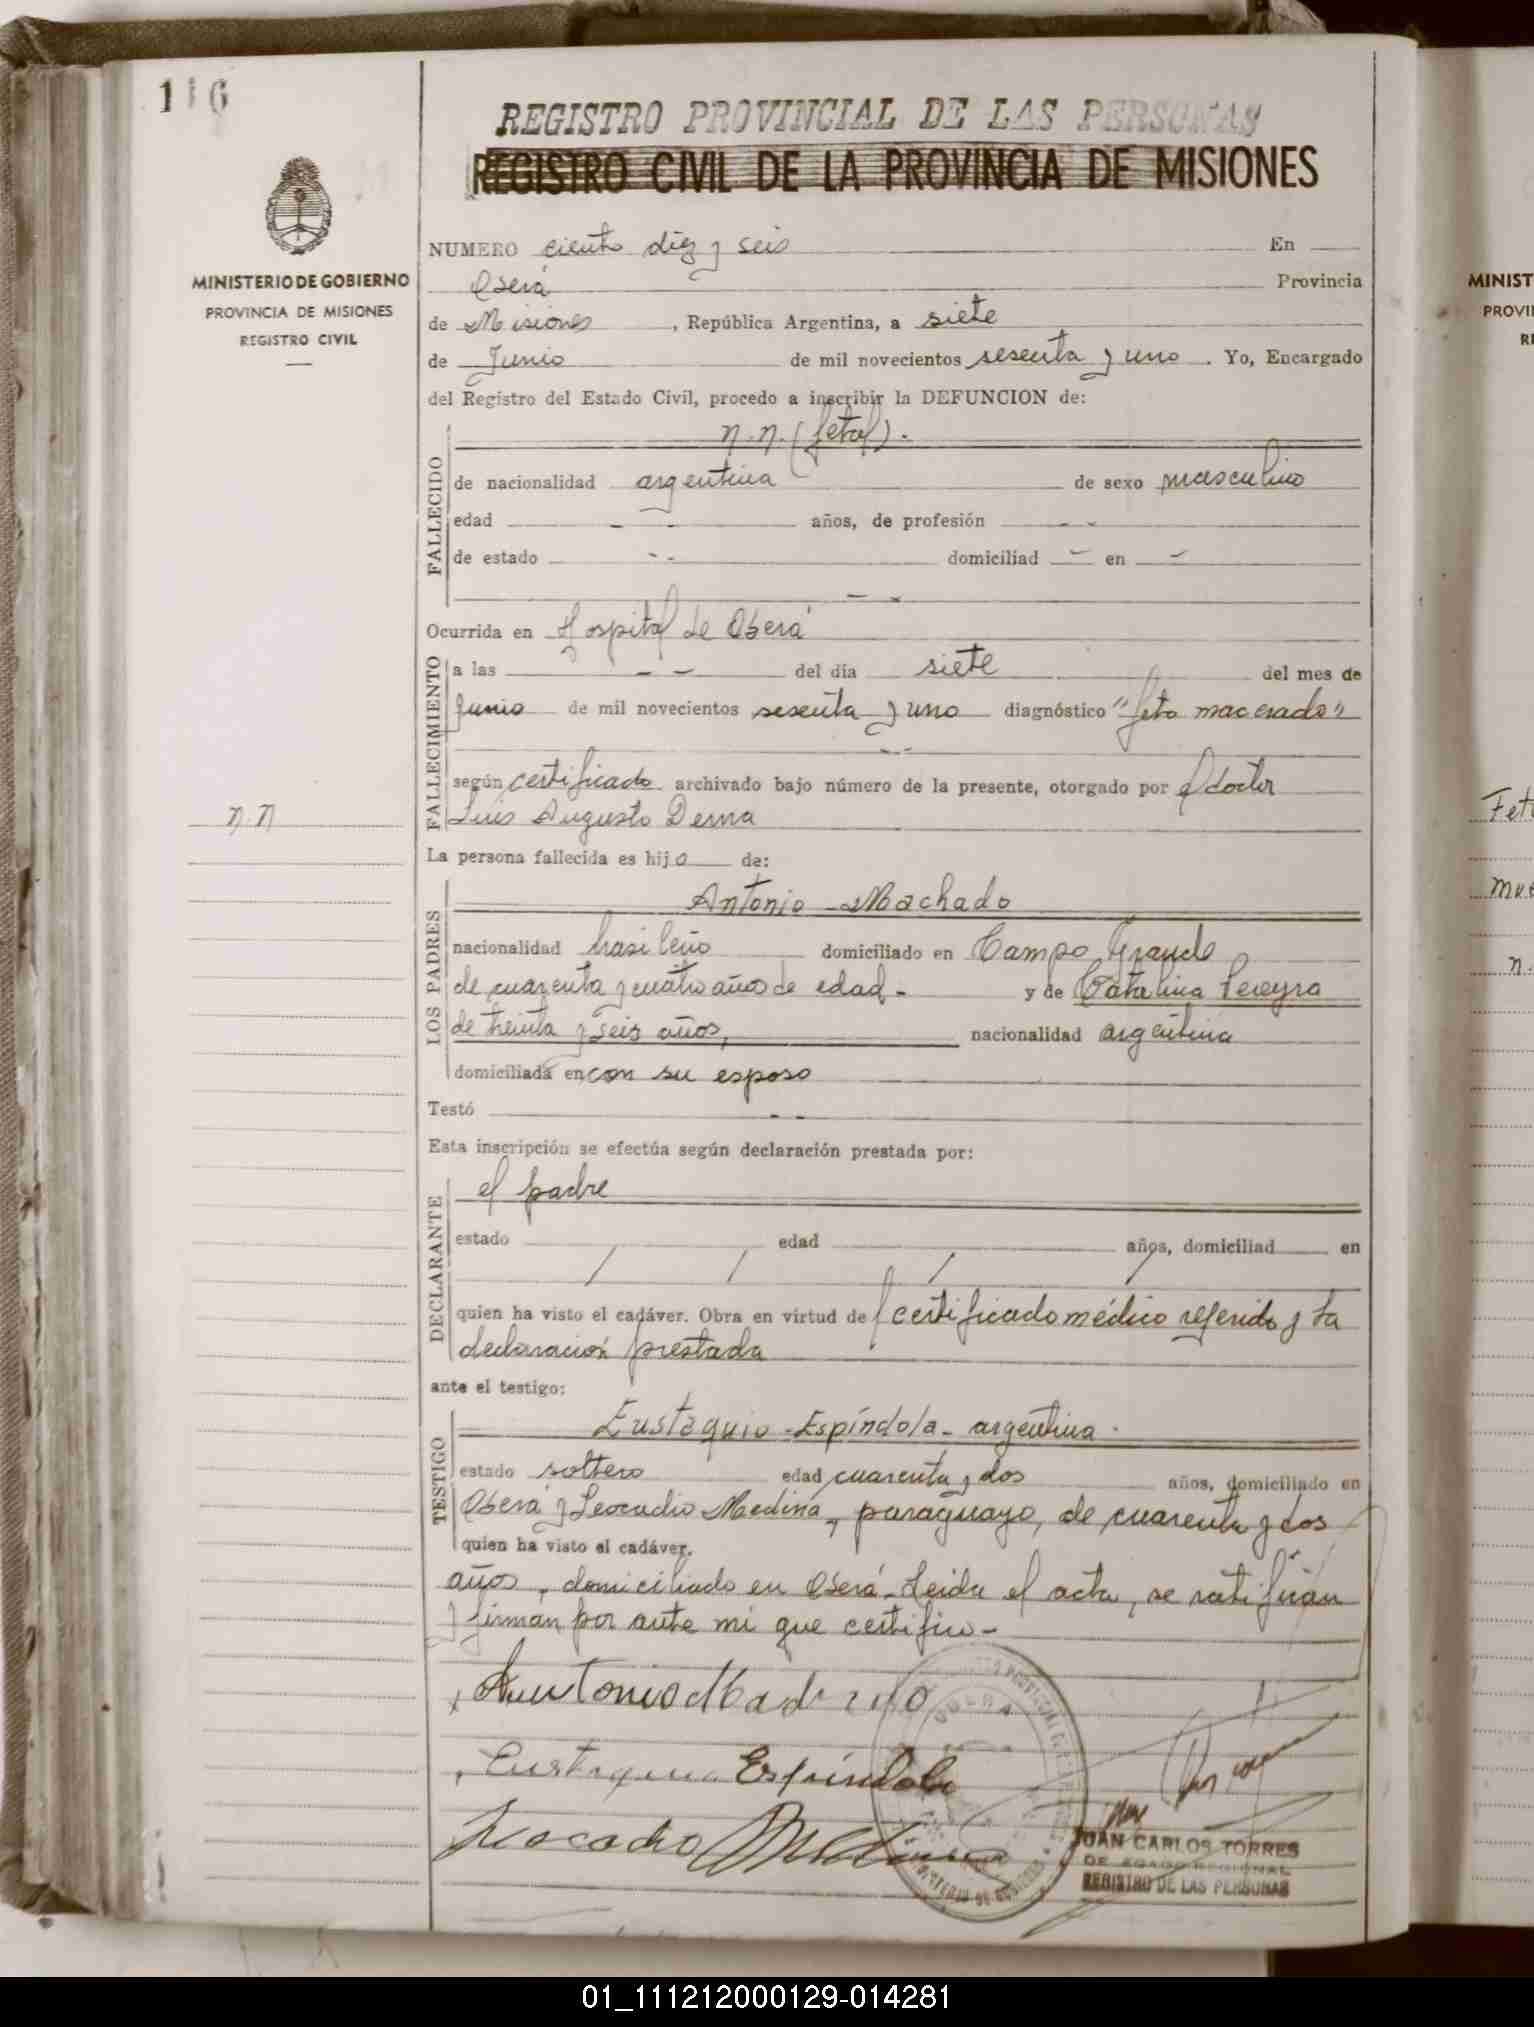 116
REGISTRO PROVINCIAL DE LAS PERSONAS
REGISTRO CIVIL DE LA PROVINCIA DE MISIONES
MINISTERIO DE GOBIERNO
PROVINCIA DE MISIONES
REGISTRO CIVIL
NUMERO ciento diez y seis En
Oberá Provincia
de Misiones, República Argentina, a siete
de Junio de mil novecientos sesenta y uno. Yo, Encargado
del Registro del Estado Civil, procedo a inscribir la DEFUNCION de:
FALLECIDO
n.n. (fetal).
de nacionalidad argentina de sexo masculino
edad -- años, de profesión --
de estado -- domiciliad - en -
--
Ocurrida en Hospital de Oberá
FALLECIMIENTO
a las -- del día siete del mes de
Junio de mil novecientos sesenta y uno diagnóstico "feto macerado"
--
según certificado archivado bajo número de la presente, otorgado por el doctor
Luis Augusto Derna
n.n
La persona fallecida es hijo de:
LOS PADRES
Antonio Machado
nacionalidad brasileño domiciliado en Campo Grande
de cuarenta y cuatro años de edad- y de Catalina Pereyra
de treinta y seis años, nacionalidad argentina
domiciliada en con su esposo
Testó --
Esta inscripción se efectúa según declaración prestada por:
DECLARANTE
el padre
estado edad años, domiciliad en
quien ha visto el cadáver. Obra en virtud del certificado médico referido y la
declaración prestada
ante el testigo:
TESTIGO
Eustaquio Espíndola- argentina.
estado soltero edad cuarenta y dos años, domiciliado en
Oberá y Leocadio Medina, paraguayo, de cuarenta y dos
quien ha visto el cadáver.
años, domiciliado en Oberá- Leida el acta, se ratifican
y firman por ante mi que certifico-
Antonio
Eustaquio Espíndola
Leocadio Medina
OBERA
JUAN CARLOS TORRES
DELEGADO REGIONAL
REGISTRO DE LAS PERSONAS
MINIST
PROVI
RE
Feto
mue
n.
01_111212000129-014281